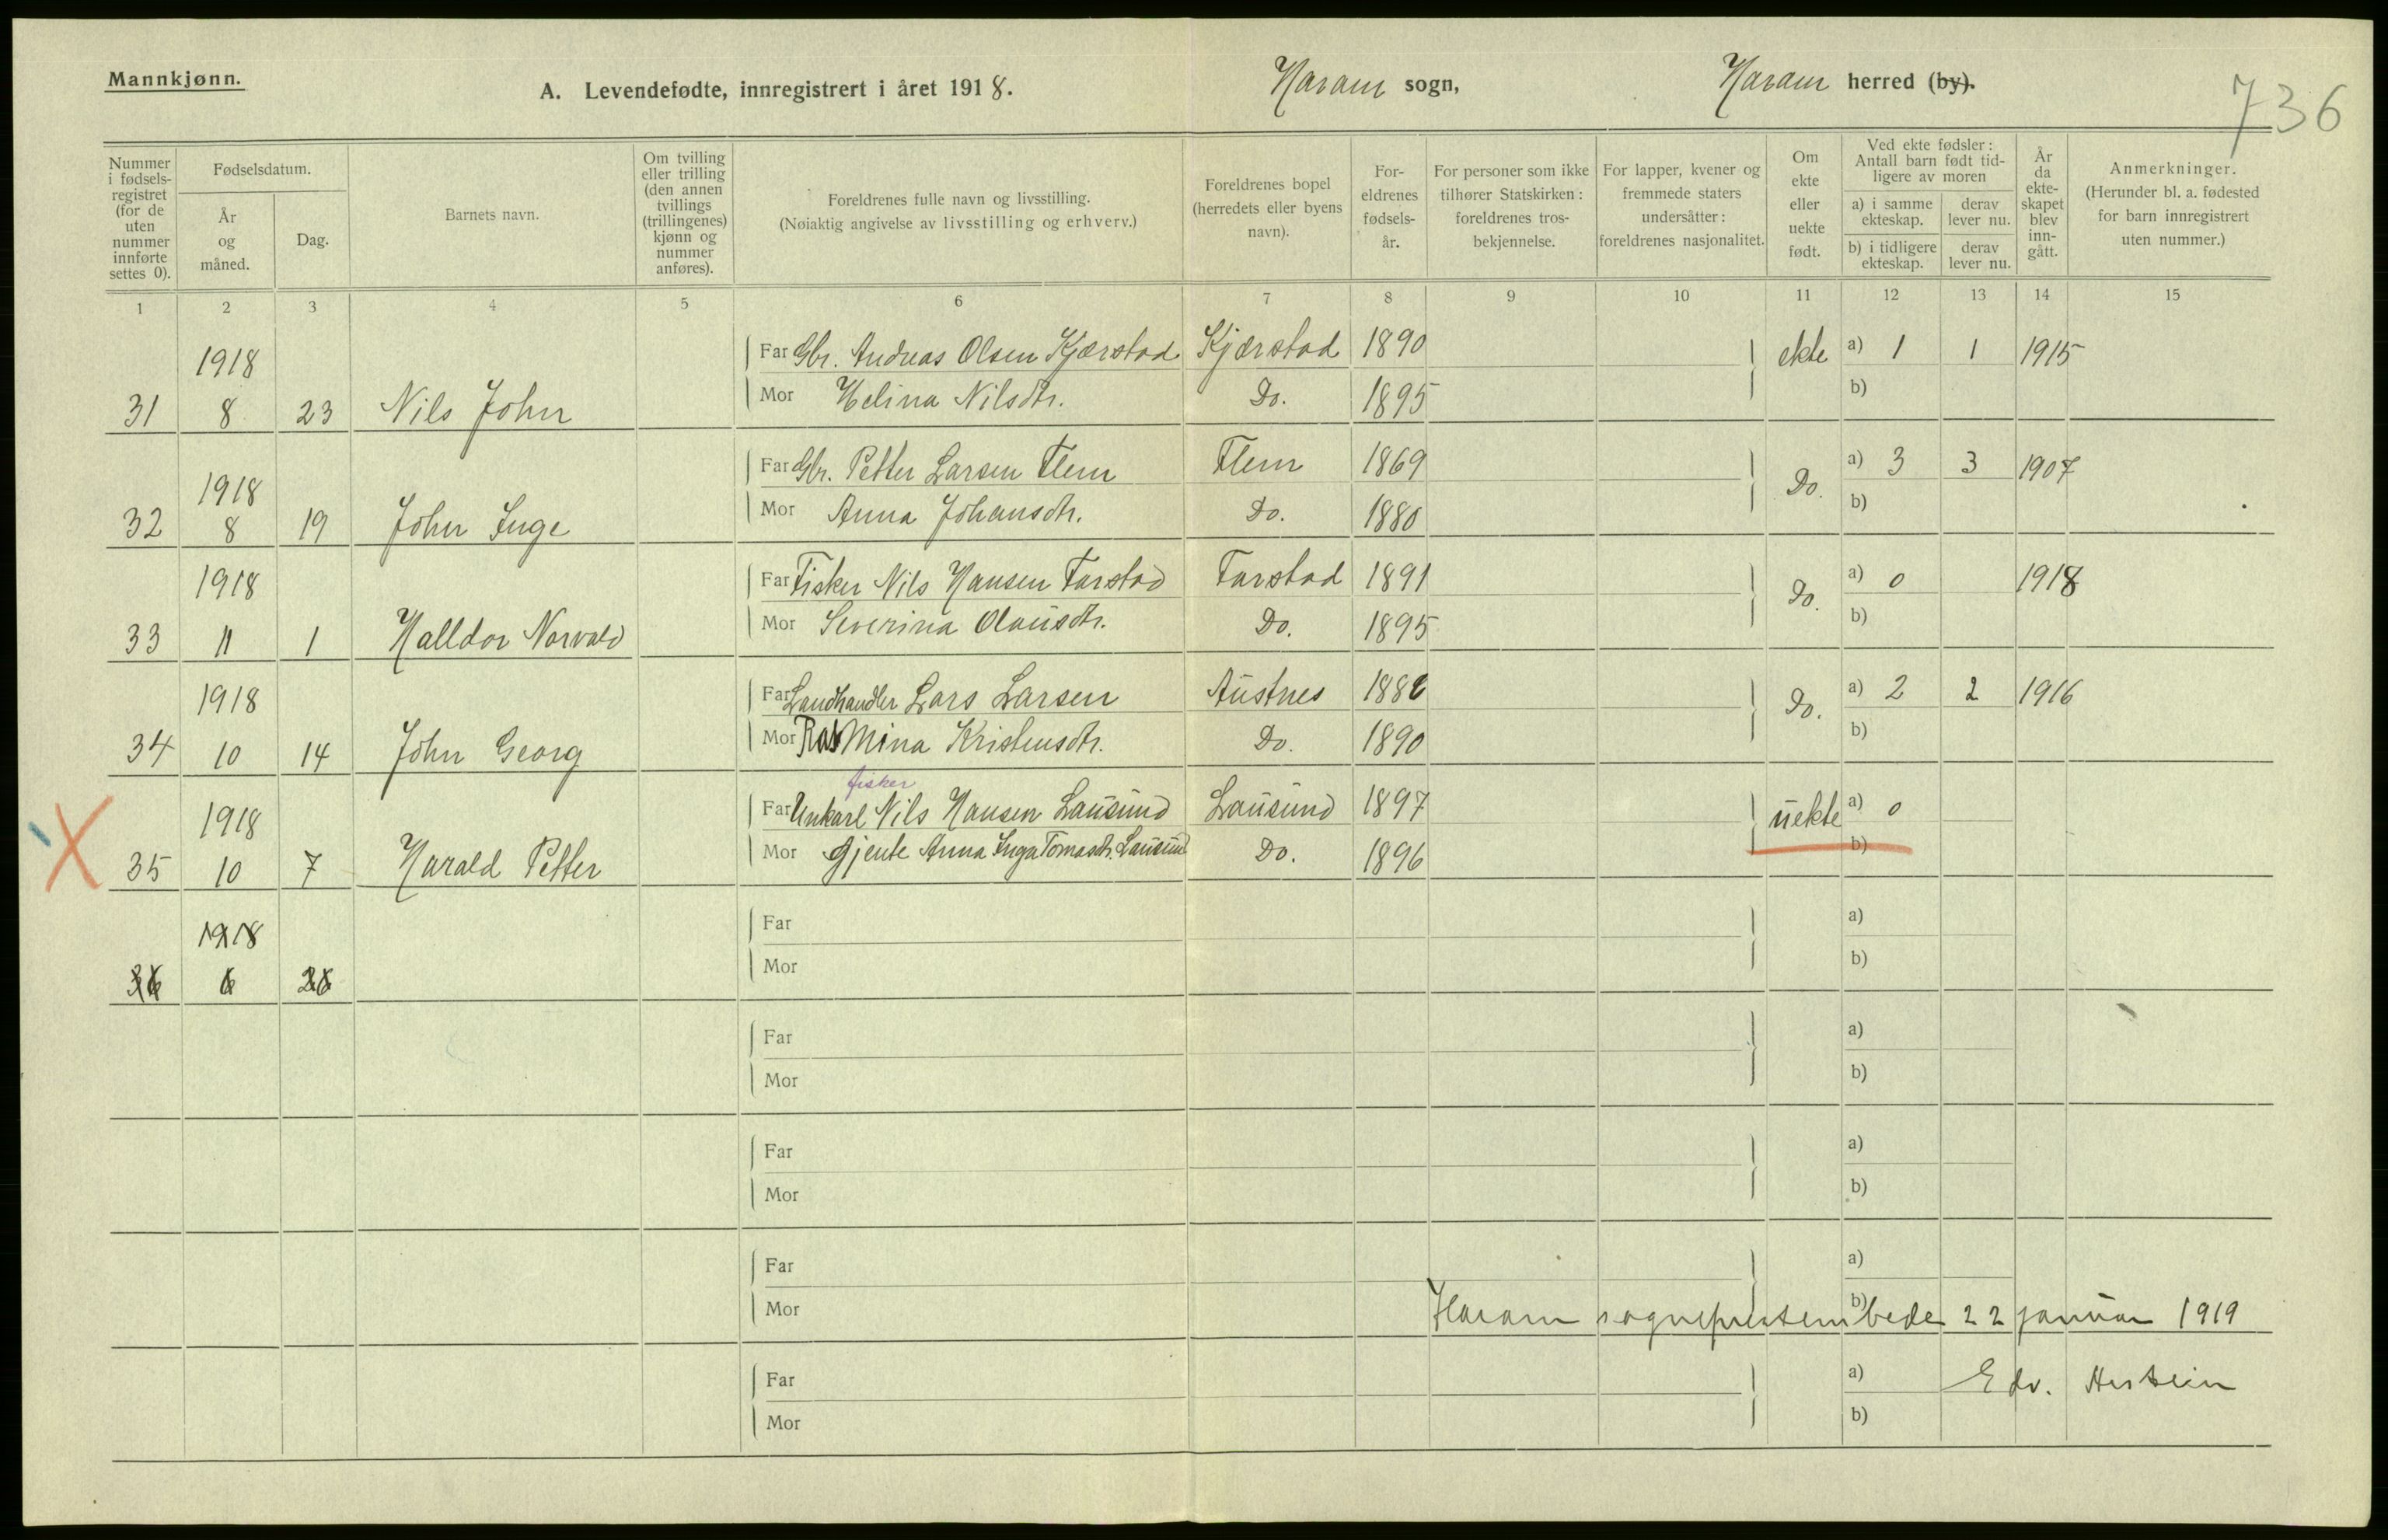 Mannkjønn.
A. Levendefødte, innregistrert i året 1918.
Haram sogn,
Haram herred (by).
736
Nummer i fødsels-registret (for de uten nummer innførte settes 0).
Fødselsdatum.
År og måned.
Dag.
Barnets navn.
Om tvilling eller trilling (den annen tvillings (trillingenes) kjønn og nummer anføres).
Foreldrenes fulle navn og livsstilling.
(Nøiaktig angivelse av livsstilling og erhverv.)
Foreldrenes bopel (herredets eller byens navn).
For-eldrenes fødsels-år.
For personer som ikke tilhører Statskirken: foreldrenes tros-bekjennelse.
For lapper, kvener og fremmede staters undersåtter: foreldrenes nasjonalitet.
Om ekte eller uekte født.
Ved ekte fødsler: Antall barn født tid-ligere av moren
a) i samme ekteskap.
derav lever nu.
b) i tidligere ekteskap.
derav lever nu.
År da ekte-skapet blev inn-gått.
Anmerkninger.
(Herunder bl. a. fødested for barn innregistrert uten nummer.)
1 2 3 4 5 6 7 8 9 10 11 12 13 14 15
1918 Far Gbr. Andreas Olsen Kjærstad Kjærstad 1890 ekte a) 1 1 1915
31 8 23 Nils John Mor Helina Nilsdtr. Do. 1895 b)
1918 Far Gbr. Petter Larsen Flem Flem 1869 Do. a) 3 3 1907
32 8 19 John Inge Mor Anna Johansdtr. Do. 1880 b)
1918 Far Fisker Nils Hansen Farstad Farstad 1891 Do. a) 0 1918
33 11 1 Halldor Norvald Mor Severina Olausdtr. Do. 1895 b)
1918 Far Landhandler Lars Larsen Austnes Do. a) 2 2 1916
34 10 14 John Georg Mor Rasmina Kristensdtr. Do. 1890 b)
fisker
1918 Far Unkarl Nils Hansen Lausund Lausund 1897 uekte a) 0
35 10 7 Harald Petter Mor Gjente Anna Inga Tomasdtr. Lausund Do. 1896 b)
1918 Far a)
36 6 26 Mor b)
Far a)
Mor b)
Far a)
Mor b)
Far a)
Mor b)
Haram sogneprestembede 22 januar 1919
Far a) Edv.
Mor b)